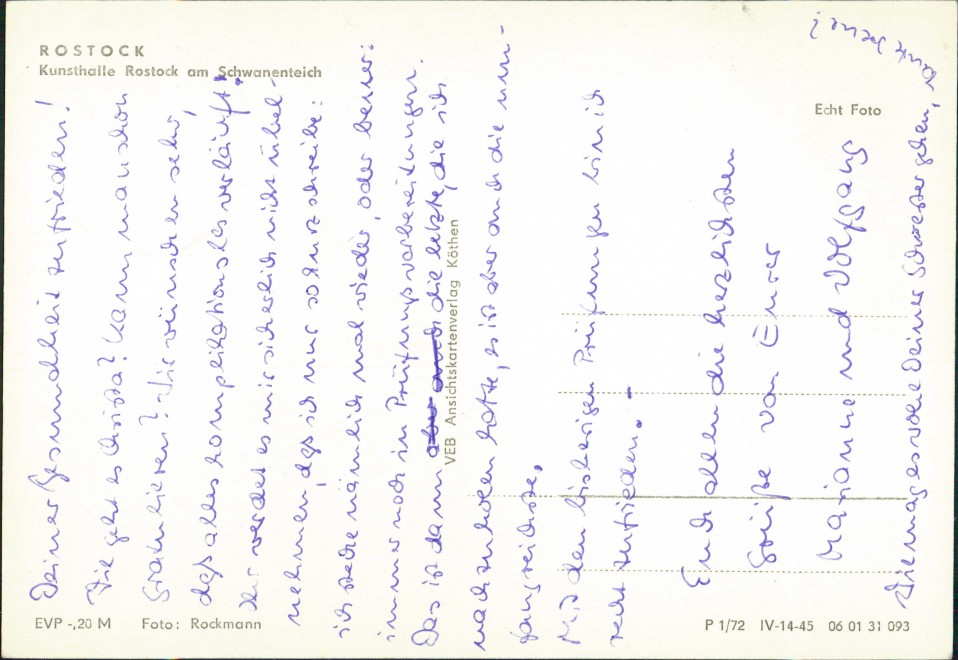 ROSTOCK
Kunsthalle Rostock am Schwanenteich
Echt Foto
Deiner Gesundheit zufrieden!
Wie geht es Christa? Kann man schon
gratulieren? Wir wünschen sehr,
daß alles komplikationslos verläuft!
Ihr werdet es mir sicherlich nicht übel-
nehmen, daß ich nur so kurz schreibe:
ich stecke nämlich mal wieder, oder besser:
immer noch in Prüfungsvorbereitungen.
Das ist dann die letzte, die ich
nachzuholen hatte, es ist aber auch die um-
fangreichste.
Mit den bisherigen Prüfungen bin ich
recht zufrieden. –
Euch allen die herzlichsten
Grüße von Eurer
Marianne und Wolfgang
Wie mag es wohl Deiner Schwester gehen,
VEB Ansichtskartenverlag Köthen
EVP -,20 M
Foto: Rockmann
P 1/72 IV-14-45 06 01 31 093